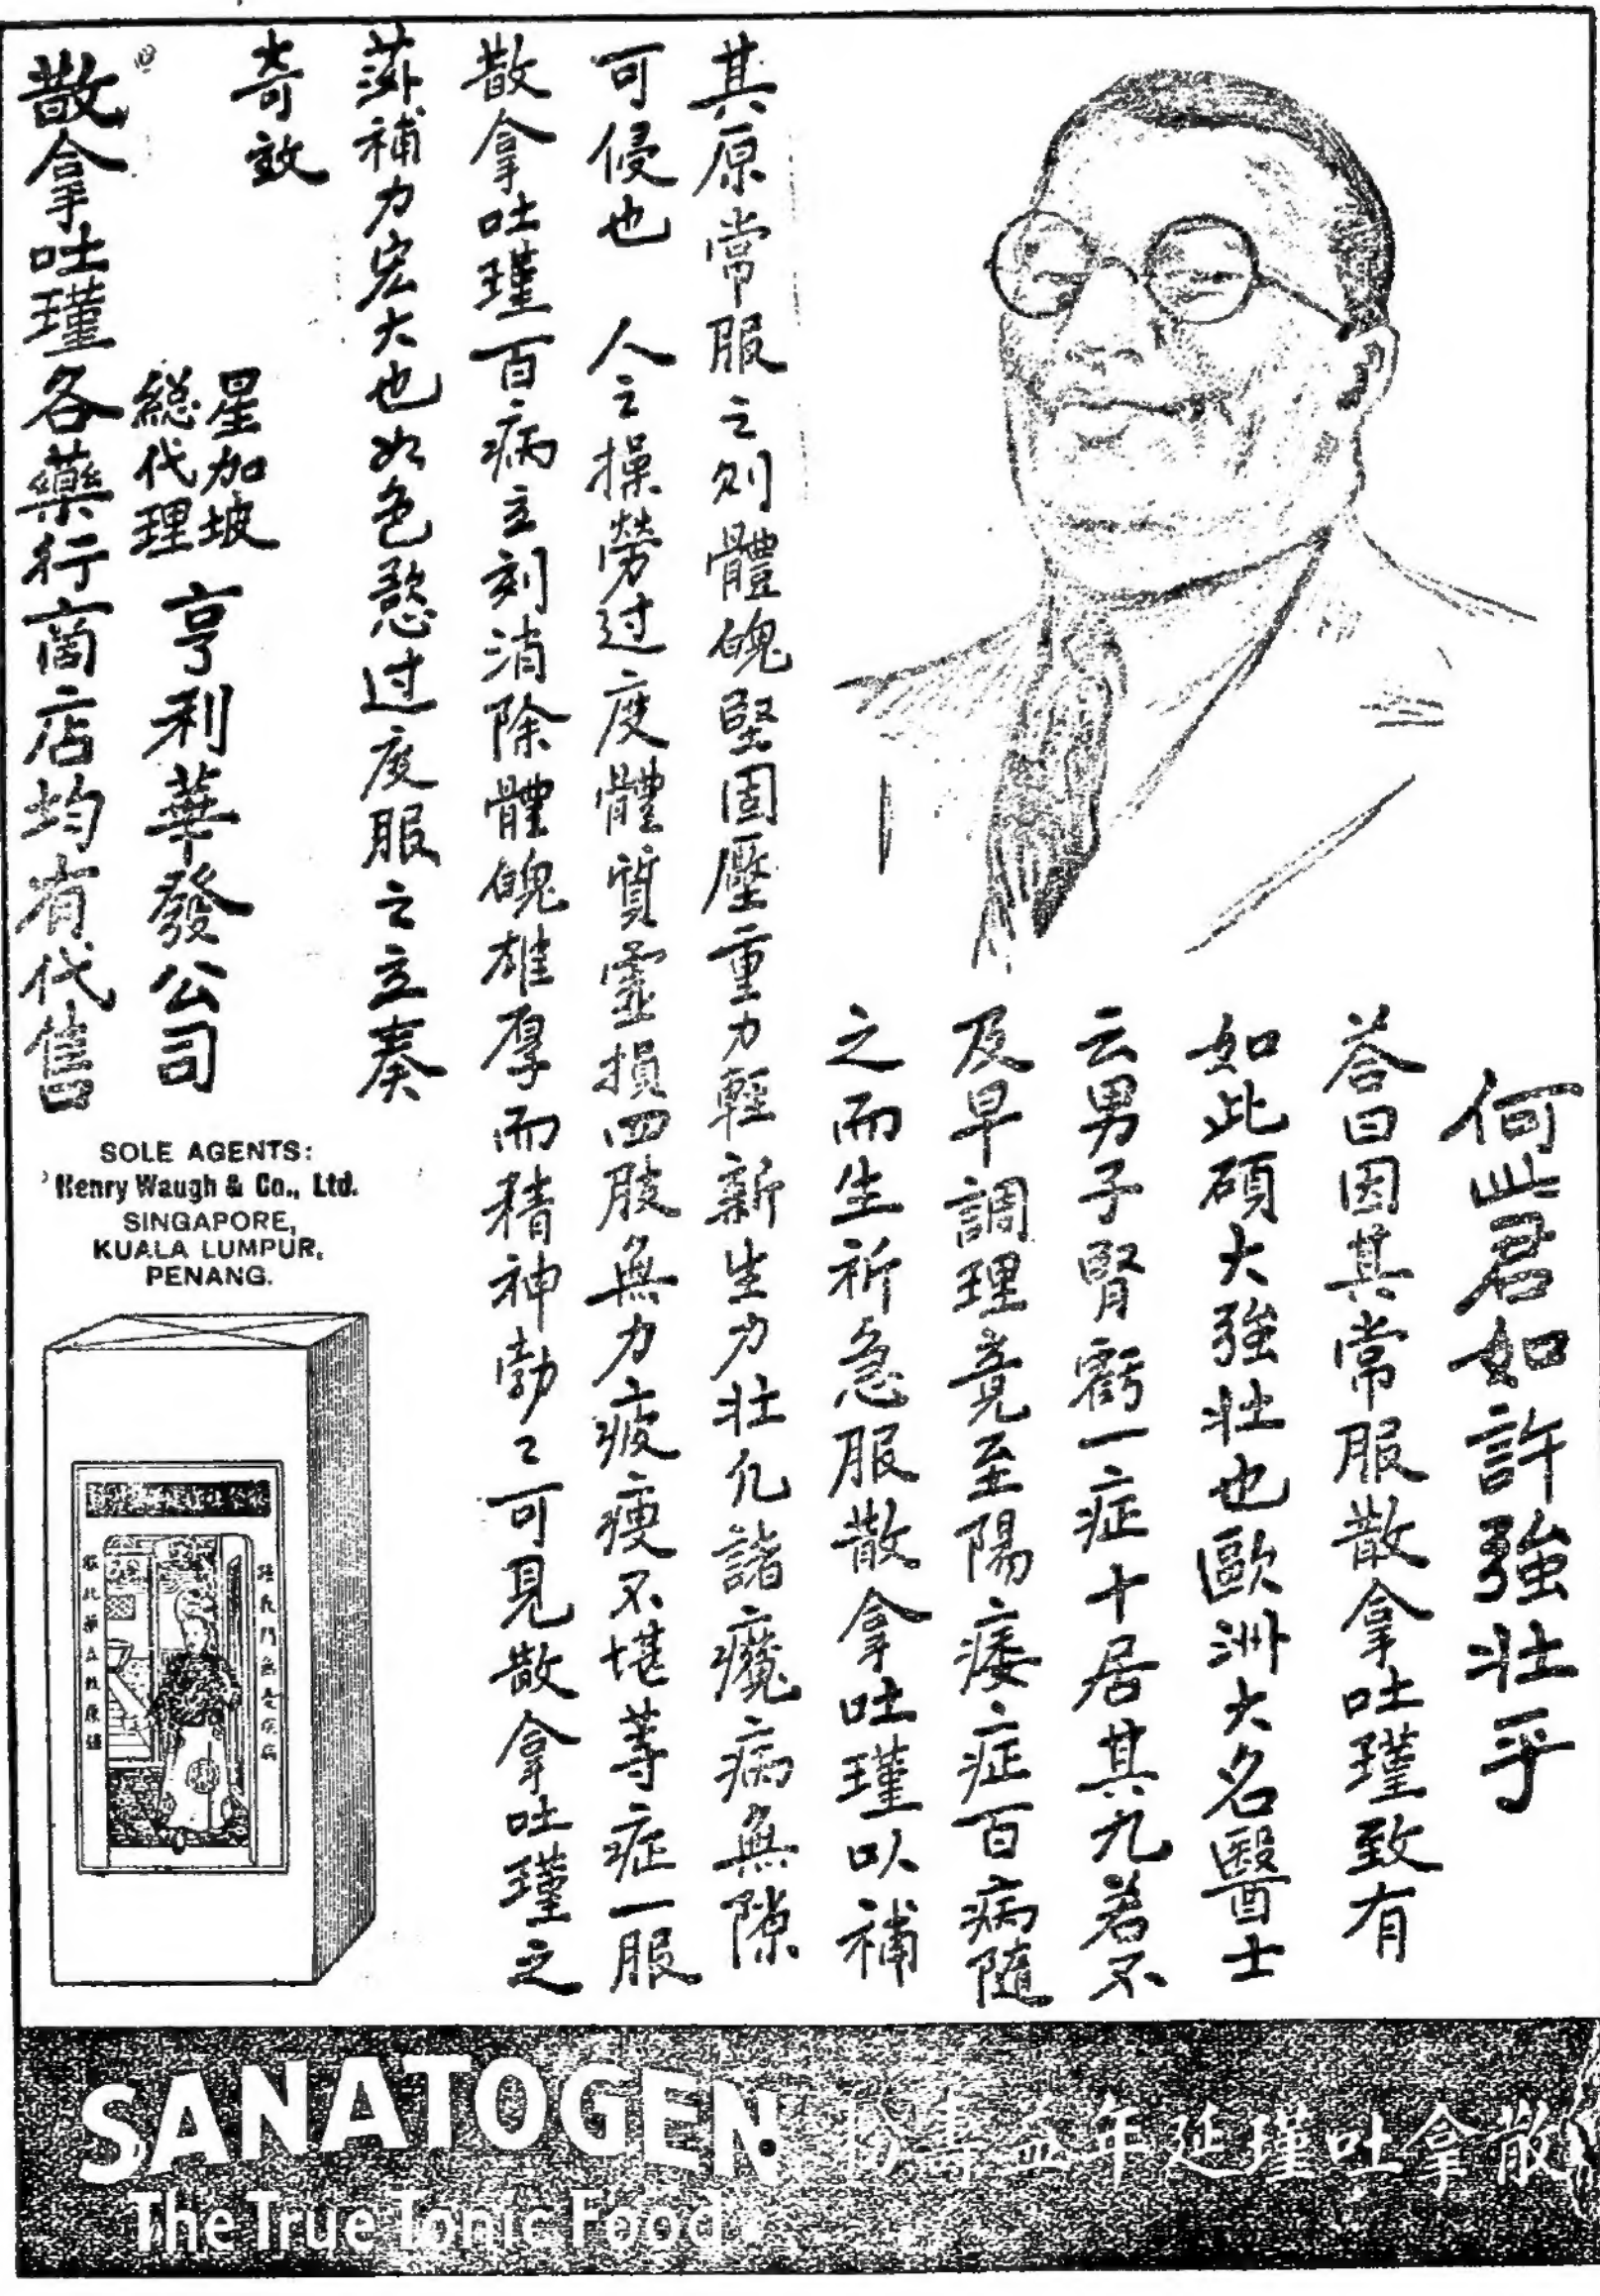 何此君如許強壯乎
荅曰因其常服散拿吐瑾致有
如此碩大強壯也歐洲大名醫士
云男子腎虧一症十居其九若不
及早調理竟至陽痿症百病隨
之而生祈急服散拿吐瑾以補
其原常服之則體魄堅固壓重力輕新生力壯凢諸癮病無隙
可侵也 人之操勞过度體質虧損四肢無力疲瘦不堪等症一服
散拿吐瑾百病立刻消除體魄雄厚而精神勃〻可見散拿吐瑾之
葯補力宏大也如色慾过度服之立奏
奇效
星加坡
総代理
亨利華發公司
散拿吐瑾各藥行商店均有代售
SOLE AGENTS:
Henry Waugh & Co., Ltd.
SINGAPORE,
KUALA LUMPUR,
PENANG.
SANATOGEN
The True Tonic Food
散拿吐瑾延年益壽粉